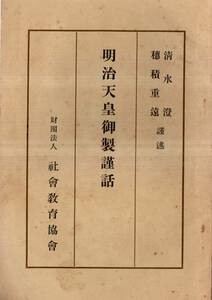 清水澄
穗積重遠 謹述
明治天皇御製謹話
財團法人 社會敎育協會